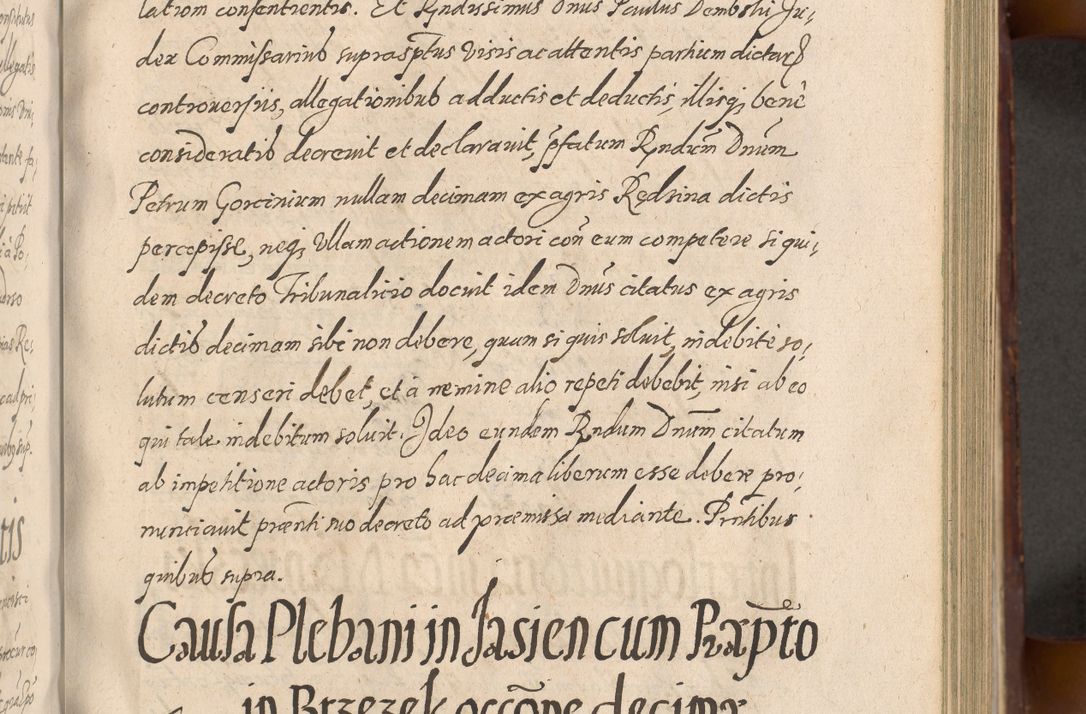 lation consentientis. Et Rndissimus Dnus Paulus Dembski Ju,
dex Commissarius suprasptus visis ac attentis partium dictarum
controversiis, allegationibus adductis et deductis, illisq, bene
consideratis decrevit et declaravit, pfatum Rndum Dnum
Petrum Gorcinium nullam decimam ex agris Rędzina dictis
percepisse, neq, Ullam actionem actori con eum competere siqui,
dem decreto Tribunalicio docuit idem Dnus citatus ex agris
dictis decimam sibi non debere, quam si quis soluit, indebite so,
lutum censeri debet, et a nemine alio repeti debebit, nisi ab eo
qui tale indebitum soluit. Ideo eundem Rndum Dnum citatum
ab impetitione actoris pro hac decima liberum esse debere pro,
nunciavit praenti suo decreto ad praemissa mediante. Pntibus
quibus supra.
Causa Plebani in Jasien cum Praepto
in Brzezek occone decimae